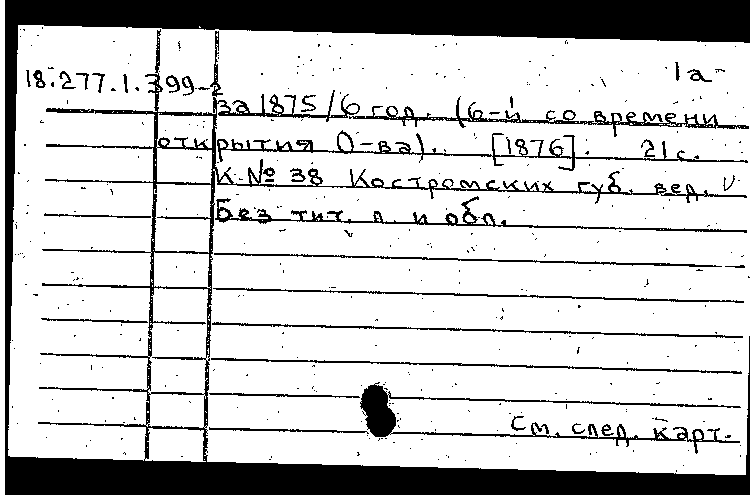 1а
18.277.1.399-2
за 1875/6 год. (6-й со времени
открытия О-ва). [1876]. 21 с.
К № 38 Костромских губ. вед.
Без тит. л. и обл.
См. след. карт.